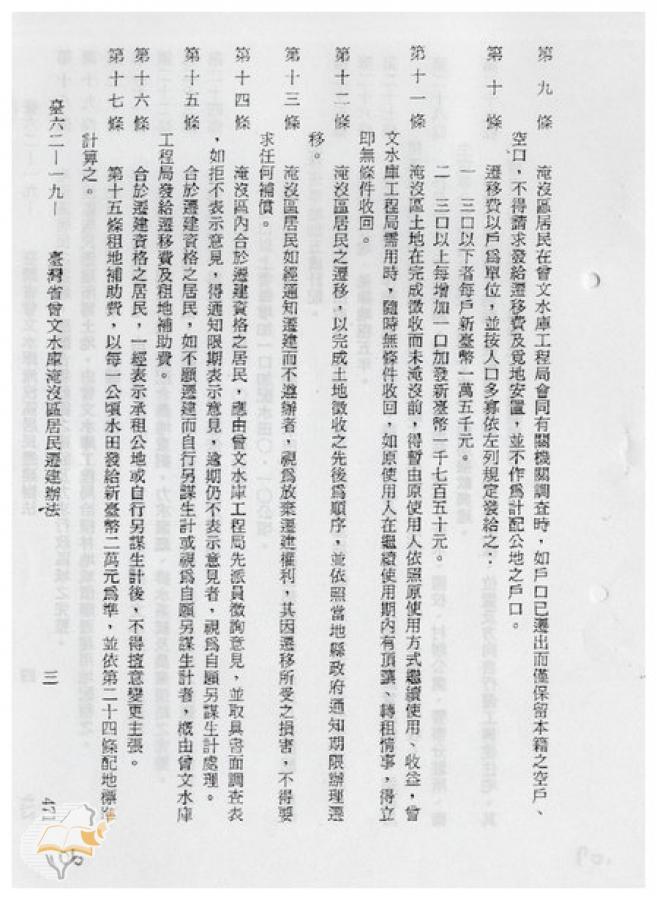 第九條　淹沒區居民在曾文水庫工程局會同有關機關調查時，如戶口已遷出而僅保留本籍之空戶、
空口，不得請求發給遷移費及覓地安置，並不作為計配公地之戶口。
第十條　遷移費以戶為單位，並按人口多寡依左列規定發給之：
一　三口以下者每戶新臺幣一萬五千元。
二　三口以上每增加一口加發新臺幣一千七百五十元。
第十一條　淹沒區土地在完成徵收而未淹沒前，得暫由原使用人依照原使用方式繼續使用、收益，曾
文水庫工程局需用時，隨時無條件收回，如原使用人在繼續使用期內有頂讓、轉租情事，得立
即無條件收回。
第十二條　淹沒區居民之遷移，以完成土地徵收之先後為順序，並依照當地縣政府通知期限辦理遷
移。
第十三條　淹沒區居民如經通知遷建而不遵辦者，視為放棄遷建權利，其因遷移所受之損害，不得要
求任何補償。
第十四條　淹沒區內合於遷建資格之居民，應由曾文水庫工程局先派員徵詢意見，並取具書面調查表
，如拒不表示意見，得通知限期表示意見，逾期仍不表示意見者，視為自願另謀生計處理。
第十五條　合於遷建資格之居民，如不願遷建而自行另謀生計或視為自願另謀生計者，概由曾文水庫
工程局發給遷移費及租地補助費。
第十六條　合於遷建資格之居民，一經表示承租公地或自行另謀生計後，不得擅意變更主張。
第十七條　第十五條租地補助費，以每一公頃水田發給新臺幣二萬元為準，並依第二十四條配地標準
計算之。
臺六二－一九－　臺灣省曾文水庫淹沒區居民遷建辦法　三